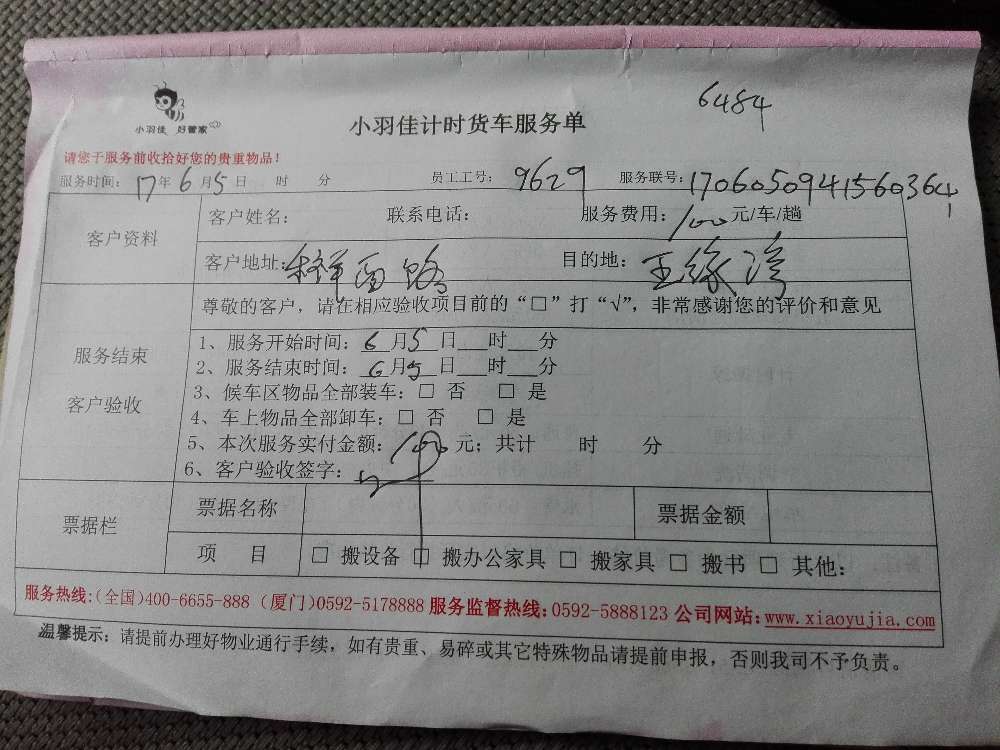 6484
小羽佳 好管家
小羽佳计时货车服务单
请您于服务前收拾好您的贵重物品!
服务时间: 17年6月5日 时 分 员工工号: 9629 服务联号: 1706050941560364
客户资料
客户姓名: 联系电话: 服务费用: 100元/车/趟
客户地址: 祥西路 目的地:
尊敬的客户，请在相应验收项目前的“□”打“√”，非常感谢您的评价和意见
服务结束
客户验收
1、服务开始时间: 6月5日___时___分
2、服务结束时间: 6月5日___时___分
3、候车区物品全部装车: □ 否 □ 是
4、车上物品全部卸车: □ 否 □ 是
5、本次服务实付金额: 100元; 共计 时 分
6、客户验收签字:
票据栏
票据名称 票据金额
项 目 □ 搬设备 □ 搬办公家具 □ 搬家具 □ 搬书 □ 其他:
服务热线:(全国)400-6655-888 (厦门)0592-5178888 服务监督热线: 0592-5888123 公司网站: www.xiaoyujia.com
温馨提示: 请提前办理好物业通行手续，如有贵重、易碎或其它特殊物品请提前申报，否则我司不予负责。